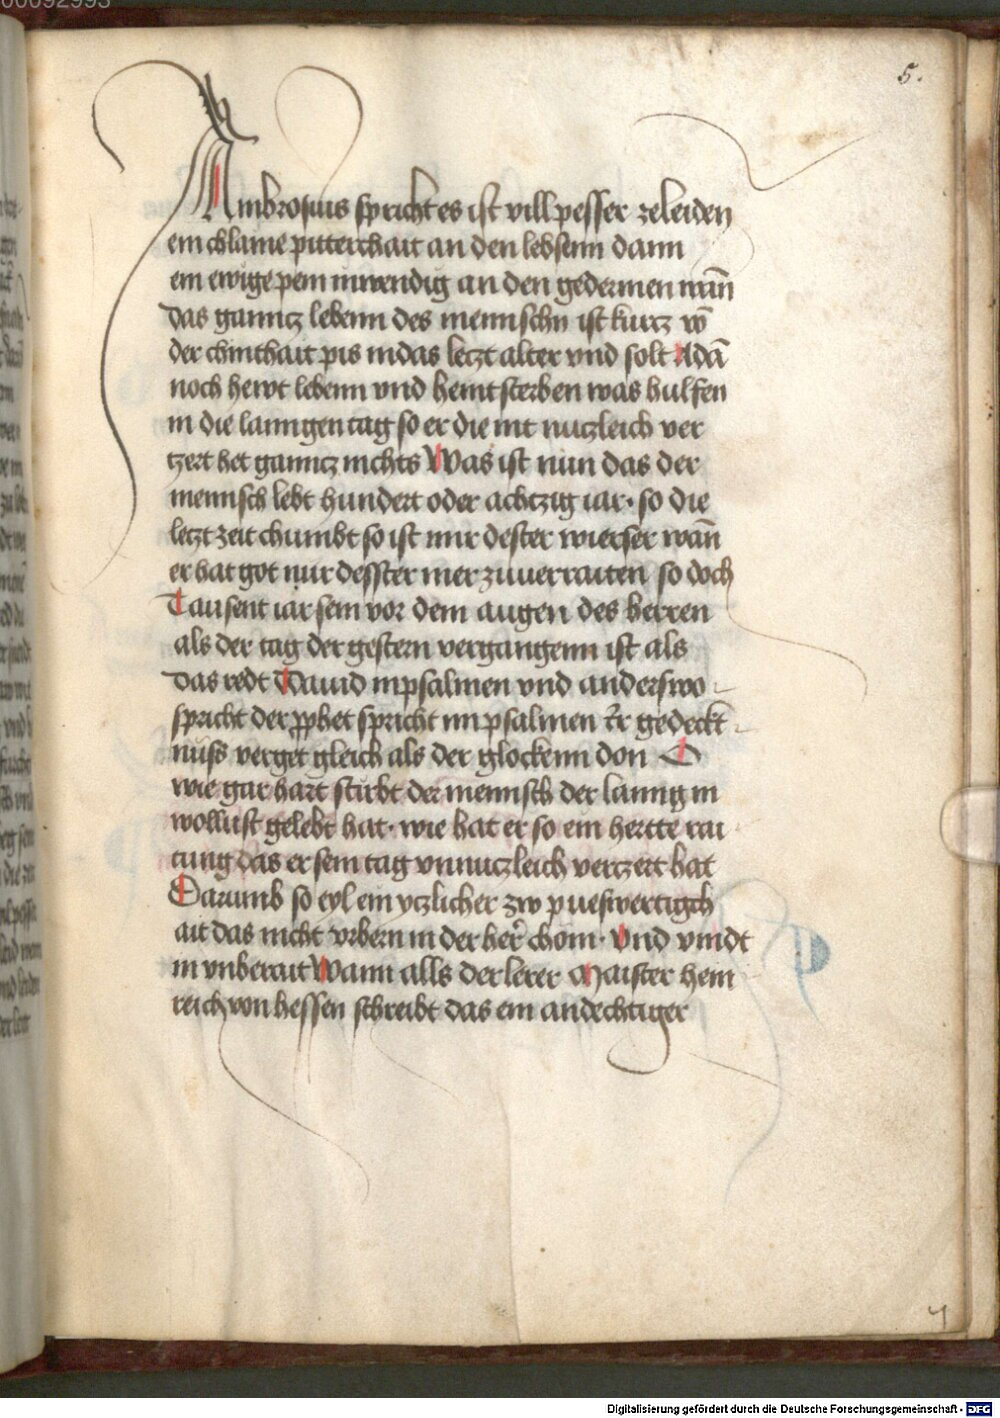 00092993
5.
Ambrosius spricht es ist vill pesser zeleiden
ein chlaine pitterchait an den lebsenn dann
ein ewige pein inwendig an den gedermen wān
das ganntz lebenn des mennschn ist kurcz vō
der chinthait pis in das letzt alter vnd solt Adā
noch hewt lebenn vnd heint sterben was hulfen
in die lanngen tag so er die nit nutzleich ver
tzert het ganntz nichts Was ist nun das der
mennsch lebt hundert oder achtzig iar · so die
letzt zeit chumbt so ist mir dester wierser wān
er hat got nur desster mer zuuerraiten so doch
Tausent iar sein vor dem augen des herren
als der tag der gestern vergangenn ist als
das redt Dauid in psalmen vnd anderswo
spricht der pphet spricht im psalmen Er gedeckt
nuss verget gleich als der glockenn don O
wie gar hart stirbt der mennsch der lanng in
wollust gelebt hat · wie hat er so ein hertte rai
tung das er sein tag vnnutzleich verzert hat
Darumb so eyl ein yczlicher zw puesvertigch
ait das nicht vrbern in der her chom · Vnd vindt
in vnberait Wann alls der lerer Maister hein
reich von hessen schreibt das ein andechtiger
4
Digitalisierung gefördert durch die Deutsche Forschungsgemeinschaft - DFG